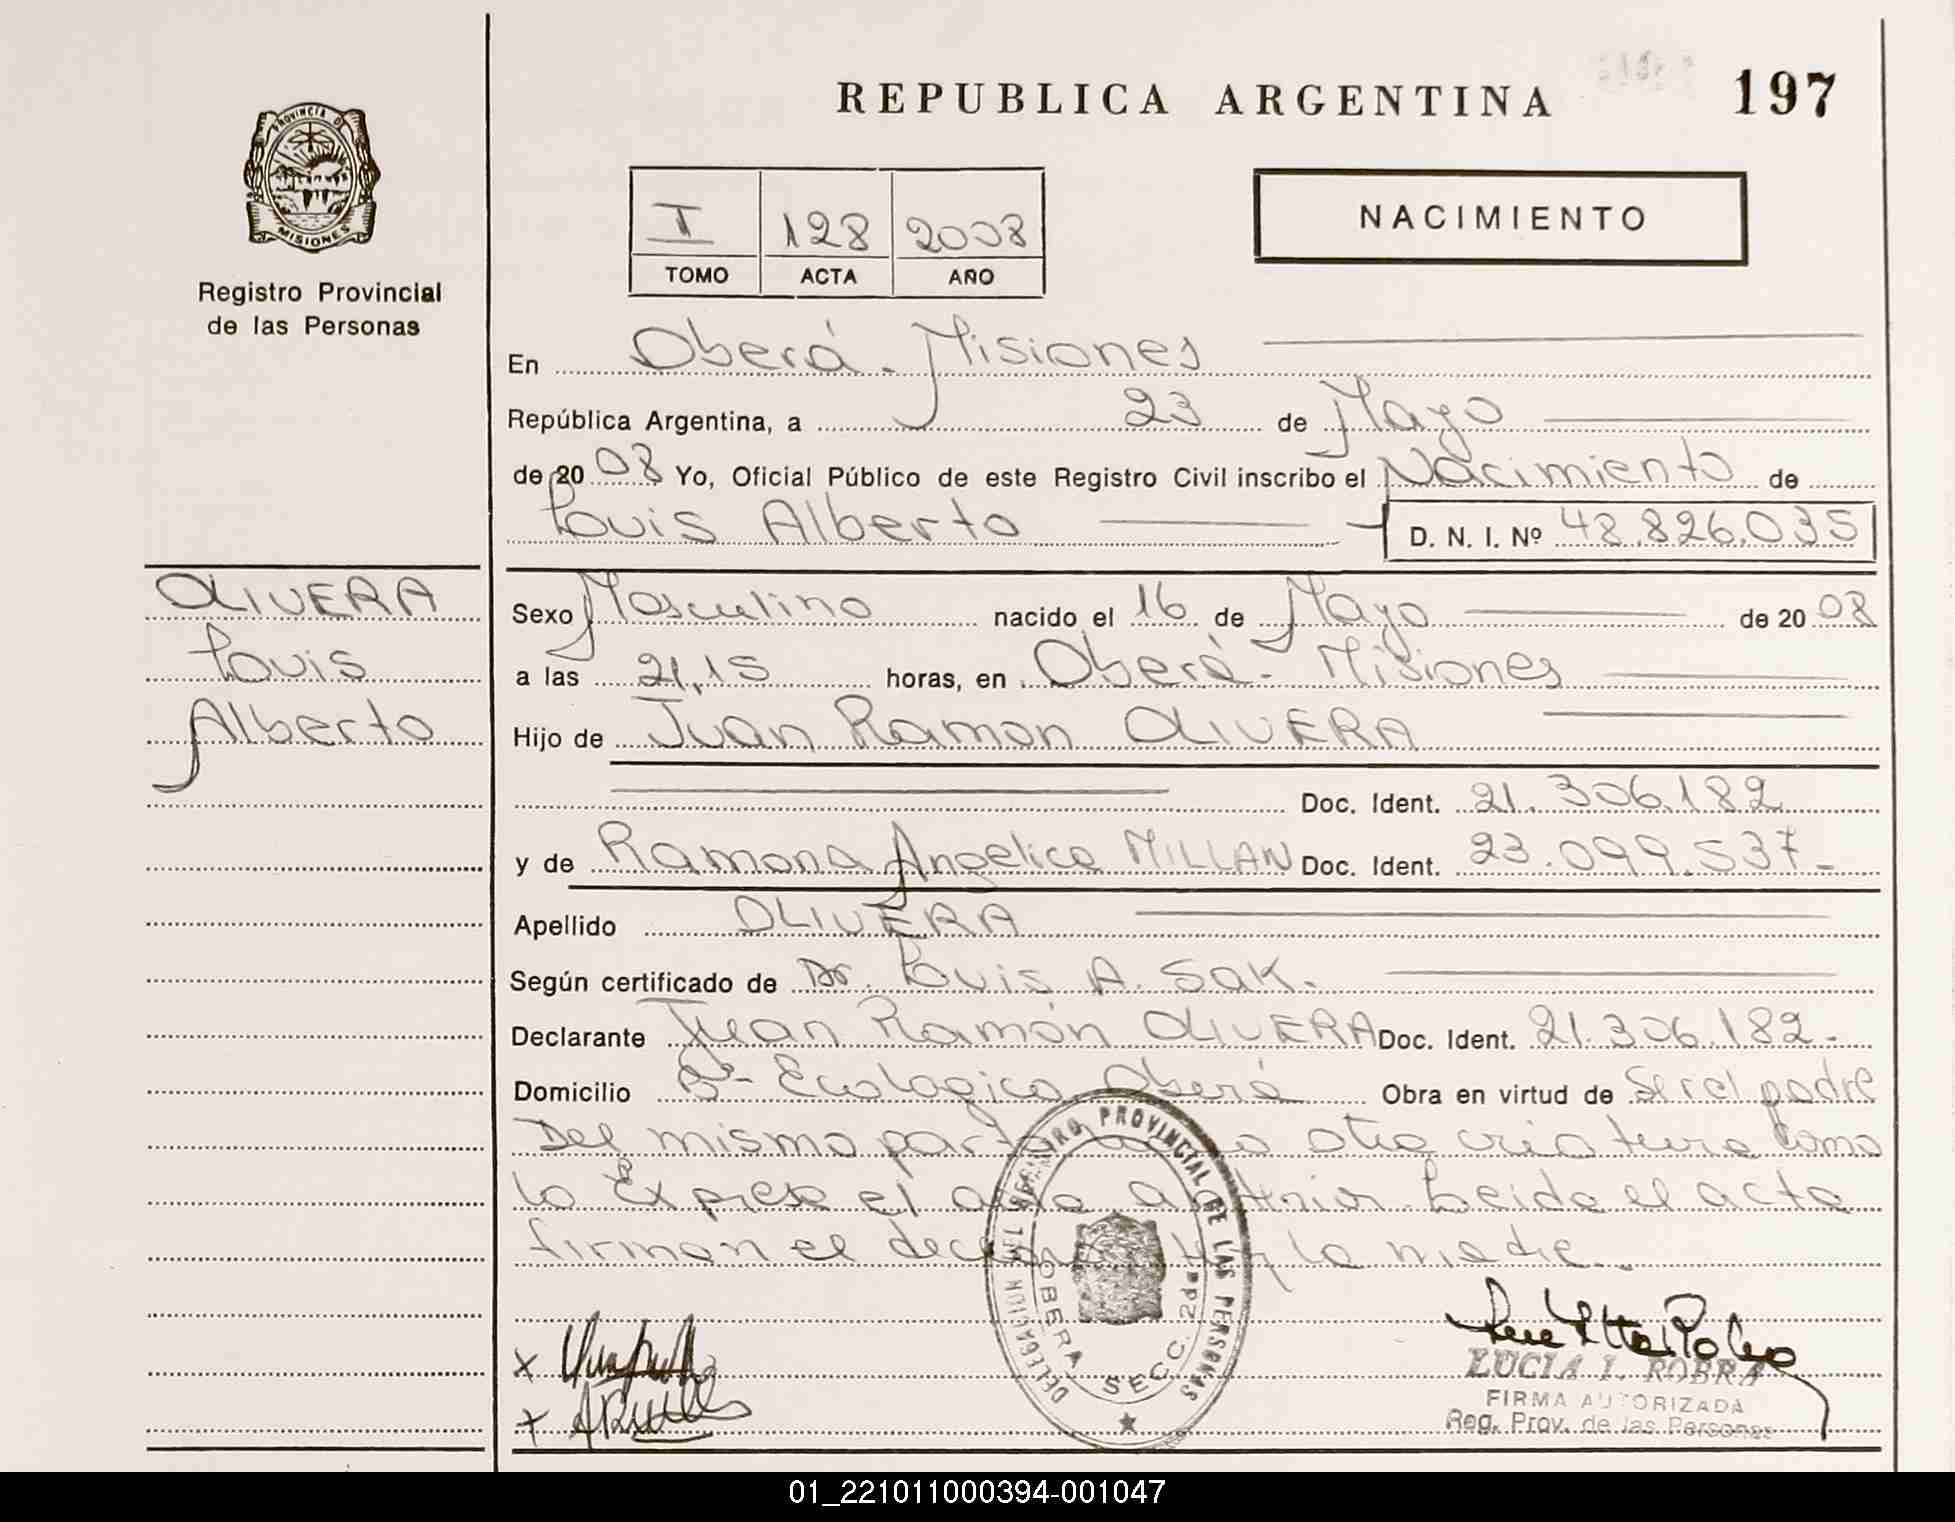 REPUBLICA ARGENTINA
197
PROVINCIA DE
MISIONES
Registro Provincial
de las Personas
NACIMIENTO
I 128 2008
TOMO ACTA AÑO
En Oberá. Misiones
República Argentina, a 23 de Mayo
de 2008 Yo, Oficial Público de este Registro Civil inscribo el Nacimiento de
Louis Alberto D. N. I. Nº 48.826.035
OLIVERA
Louis
Alberto
Sexo Masculino nacido el 16 de Mayo de 2008
a las 21,15 horas, en Oberá - Misiones
Hijo de Juan Ramon OLIVERA
Doc. Ident. 21.306.182
y de Ramona Angelica MILLAN Doc. Ident. 23.099.537-
Apellido OLIVERA
Según certificado de Dr. Louis A. Sak.
Declarante Juan Ramón OLIVERA Doc. Ident. 21.306.182-
Domicilio Bº- Ecologico Oberá Obra en virtud de Ser el padre
Del mismo parto otra criatura como
lo Expresa el acta Anterior. Leida el acta
firman el declarante y la madre.
DELEGACION DEL REGISTRO PROVINCIAL DE LAS PERSONAS
OBERA SECC. 2da
LUCIA I. ROBRA
FIRMA AUTORIZADA
Reg. Prov. de las Personas
01_221011000394-001047